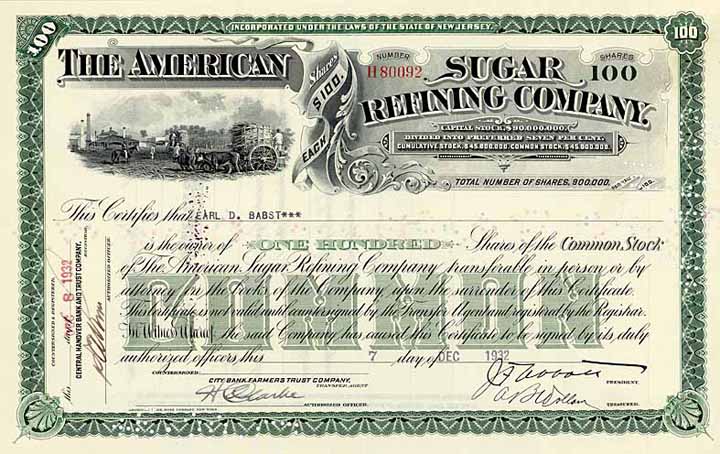 INCORPORATED UNDER THE LAWS OF THE STATE OF NEW JERSEY.
100
100
THE AMERICAN
Shares $100. EACH
NUMBER
H80092
SHARES
100
SUGAR
REFINING COMPANY.
CAPITAL STOCK, $90,000,000.
DIVIDED INTO PREFERRED SEVEN PER CENT.
CUMULATIVE STOCK, $45,000,000. COMMON STOCK, $45,000,000.
TOTAL NUMBER OF SHARES, 900,000.
PAR VALUE $100.
This Certifies that EARL D. BABST***
is the owner of ONE HUNDRED Shares of the Common Stock
of The American Sugar Refining Company transferable in person or by
attorney on the books of the Company upon the surrender of this Certificate.
This certificate is not valid until countersigned by the Transfer Agent and registered by the Registrar.
In Witness Whereof the said Company has caused this Certificate to be signed by its duly
authorized officers this 7 day of DEC 1932
COMMON
COUNTERSIGNED
CITY BANK FARMERS TRUST COMPANY,
TRANSFER AGENT
H Clarke
AUTHORIZED OFFICER.
PRESIDENT.
TREASURER.
COUNTERSIGNED & REGISTERED,
this 8 1932
CENTRAL HANOVER BANK AND TRUST COMPANY
REGISTRAR
AUTHORIZED OFFICER